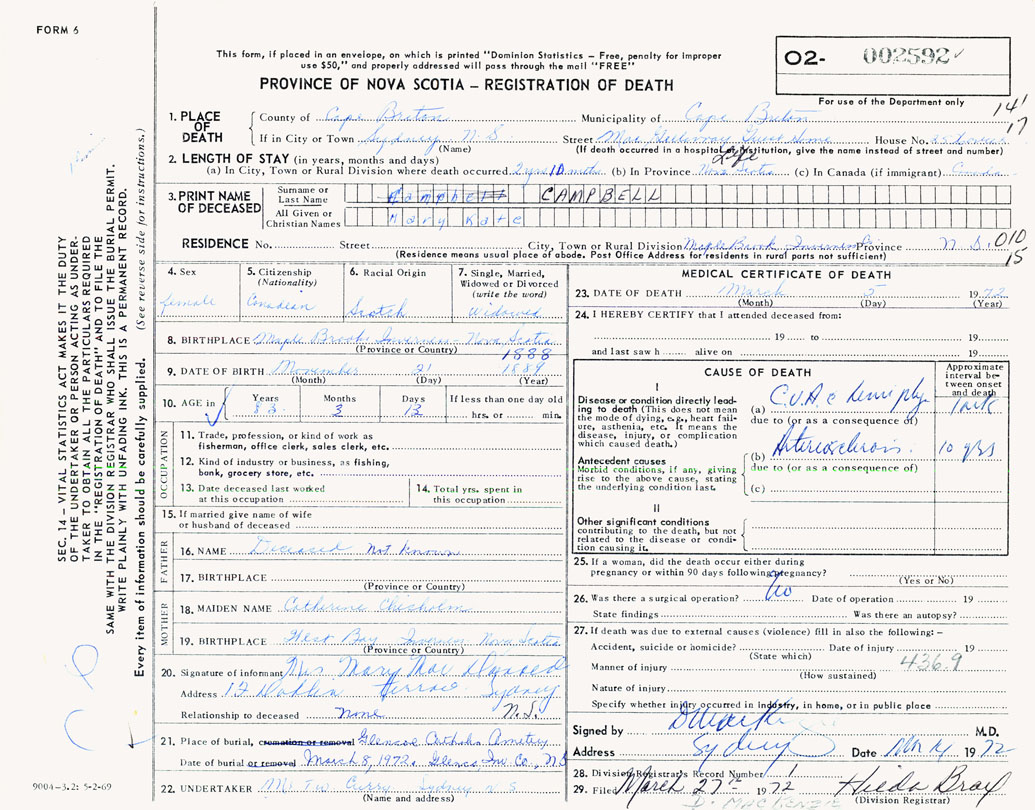 FORM 6
This form, if placed in an envelope, on which is printed "Dominion Statistics – Free, penalty for improper
use $50," and properly addressed will pass through the mail "FREE"
PROVINCE OF NOVA SCOTIA – REGISTRATION OF DEATH
O2- 002592
For use of the Department only
141
17
1. PLACE OF DEATH
County of Cape Breton Municipality of Cape Breton
If in City or Town Sydney N. S. Street House No.
(Name) (If death occurred in a hospital or institution, give the name instead of street and number)
2. LENGTH OF STAY (in years, months and days) Life
(a) In City, Town or Rural Division where death occurred 2 yrs 10 mths (b) In Province Nova Scotia (c) In Canada (if immigrant) Canada
3. PRINT NAME OF DECEASED
Surname or Last Name Campbell CAMPBELL
All Given or Christian Names Mary Kate
RESIDENCE No. Street City, Town or Rural Division Maple Brook Inverness Co Province N. S. 010
15
(Residence means usual place of abode. Post Office Address for residents in rural parts not sufficient)
4. Sex
female
5. Citizenship
(Nationality)
Canadian
6. Racial Origin
Scotch
7. Single, Married,
Widowed or Divorced
(write the word)
Widowed
8. BIRTHPLACE Maple Brook Inverness Nova Scotia
(Province or Country)
1888
9. DATE OF BIRTH November 21 1889
(Month) (Day) (Year)
10. AGE in
Years 83
Months 3
Days 13
If less than one day old
hrs. or min.
OCCUPATION
11. Trade, profession, or kind of work as
fisherman, office clerk, sales clerk, etc.
12. Kind of industry or business, as fishing,
bank, grocery store, etc.
13. Date deceased last worked
at this occupation
14. Total yrs. spent in
this occupation
15. If married give name of wife
or husband of deceased
FATHER
16. NAME Deceased Not Known
17. BIRTHPLACE
(Province or Country)
MOTHER
18. MAIDEN NAME Catherine Chisholm
19. BIRTHPLACE West Bay Inverness Nova Scotia
(Province or Country)
20. Signature of informant Mrs Mary Mae
Address Terrace Sydney
Relationship to deceased None N.S.
21. Place of burial, cremation or removal Glencoe
Date of burial or removal March 8, 1972. Glencoe Inv. Co., N.S
22. UNDERTAKER Curry Sydney N S
(Name and address)
MEDICAL CERTIFICATE OF DEATH
23. DATE OF DEATH March 5 1972
(Month) (Day) (Year)
24. I HEREBY CERTIFY that I attended deceased from:
19 to 19
and last saw h alive on 19
CAUSE OF DEATH
Approximate
interval be-
tween onset
and death
I
Disease or condition directly lead-
ing to death (This does not mean
the mode of dying, e.g., heart fail-
ure, asthenia, etc. It means the
disease, injury, or complication
which caused death.)
(a) C.V.A. c
due to (or as a consequence of)
Antecedent causes
Morbid conditions, if any, giving
rise to the above cause, stating
the underlying condition last.
(b) Arteriosclerosis. 10 yrs
due to (or as a consequence of)
(c)
II
Other significant conditions
contributing to the death, but not
related to the disease or condi-
tion causing it.
25. If a woman, did the death occur either during
pregnancy or within 90 days following pregnancy?
(Yes or No)
26. Was there a surgical operation? No Date of operation 19
State findings Was there an autopsy?
27. If death was due to external causes (violence) fill in also the following: –
Accident, suicide or homicide? Date of injury 19
(State which)
436.9
Manner of injury
(How sustained)
Nature of injury
Specify whether injury occurred in industry, in home, or in public place
Signed by M.D.
Address Sydney Date 1972
28. Division Registrar's Record Number 1
29. Filed March 27th 1972 Hilda Bray
(Division Registrar)
D. MacKenzie
SEC. 14 – VITAL STATISTICS ACT MAKES IT THE DUTY
OF THE UNDERTAKER OR PERSON ACTING AS UNDER-
TAKER TO OBTAIN ALL THE PARTICULARS REQUIRED
IN THE "REGISTRATION OF DEATH" AND TO FILE THE
SAME WITH THE DIVISION REGISTRAR WHO SHALL ISSUE THE BURIAL PERMIT.
WRITE PLAINLY WITH UNFADING INK. THIS IS A PERMANENT RECORD.
Every item of information should be carefully supplied. (See reverse side for instructions.)
9004-3.2: 5-2-69